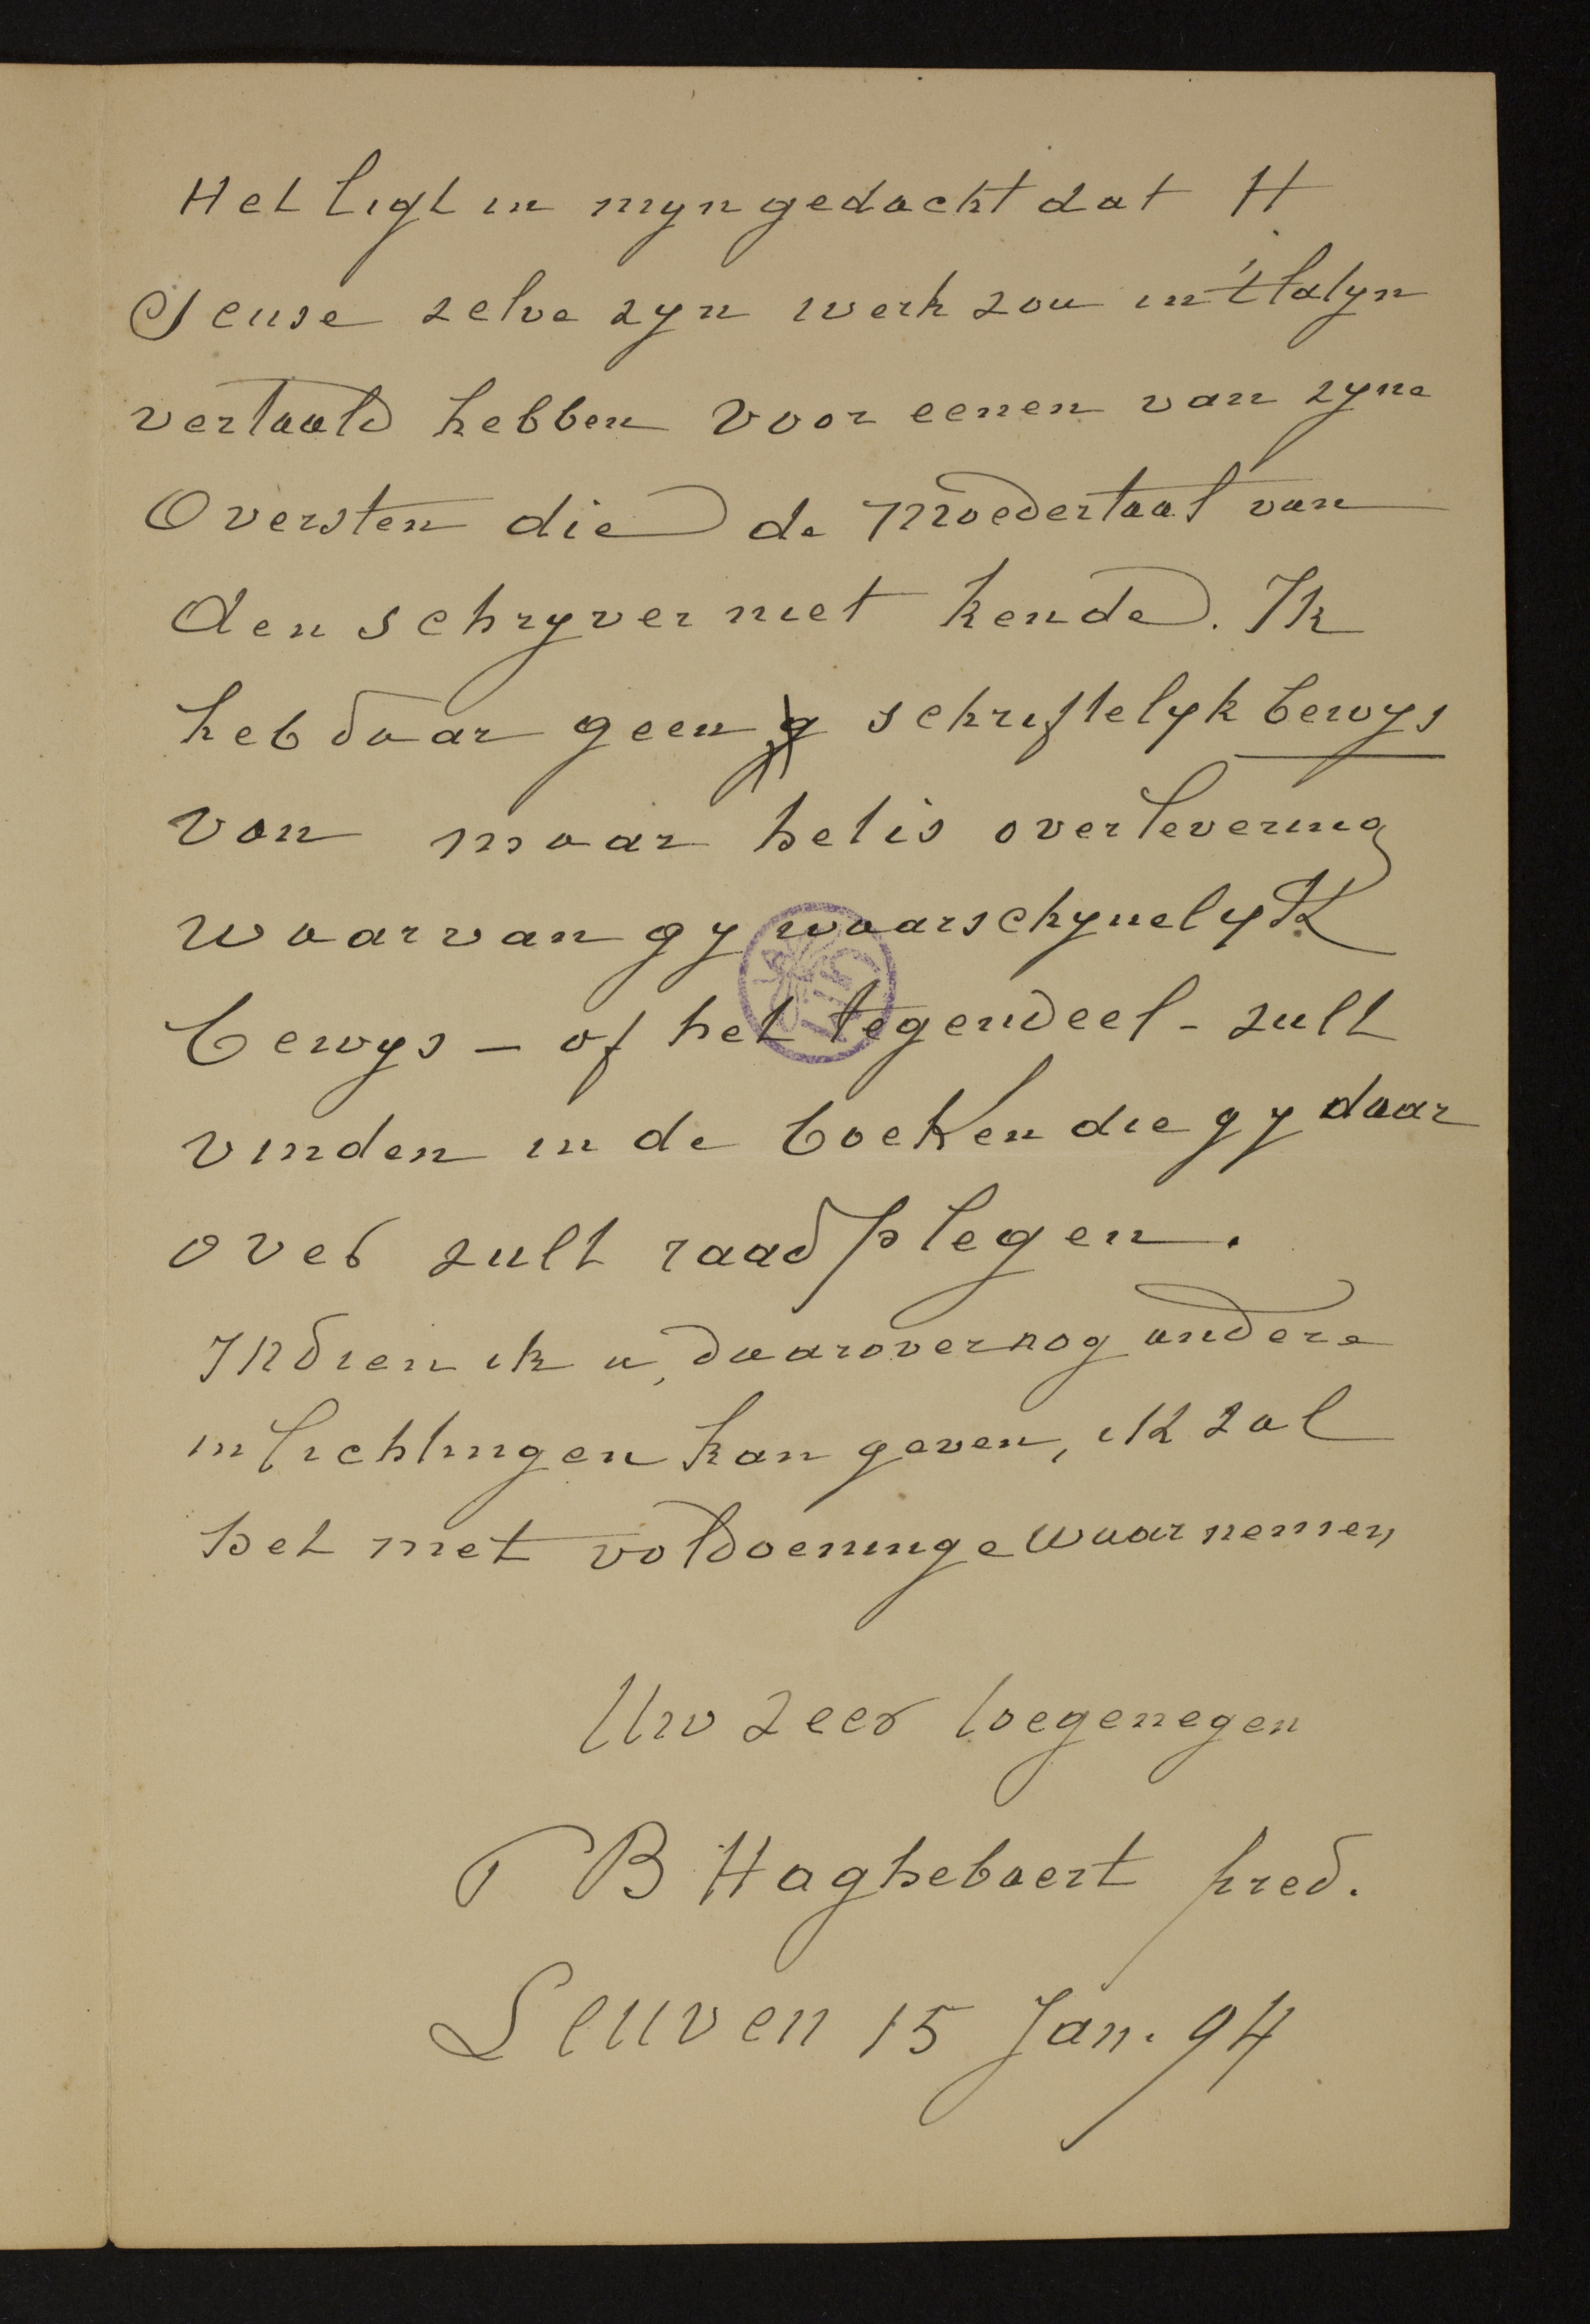 Het ligt in myn gedacht dat H
Seuse zelve zyn werk zou in 't latyn
vertaald hebben voor eenen van zyne
Oversten die de moedertaal van
den schryver niet kende. Ik
heb daar geen g schriftelyk bewys
van maar het is overlevering
waarvan gy waarschynelyk
bewys - of het tegendeel - zult
vinden in de boeken die gy daar
over zult raadplegen.
Indien ik u, daarover nog andere
inlichtingen kan geven, ik zal
het met voldoeninge waarnemen
Uw zeer toegenegen
P B Haghebaert pred.
Leuven 15 Jan. 94